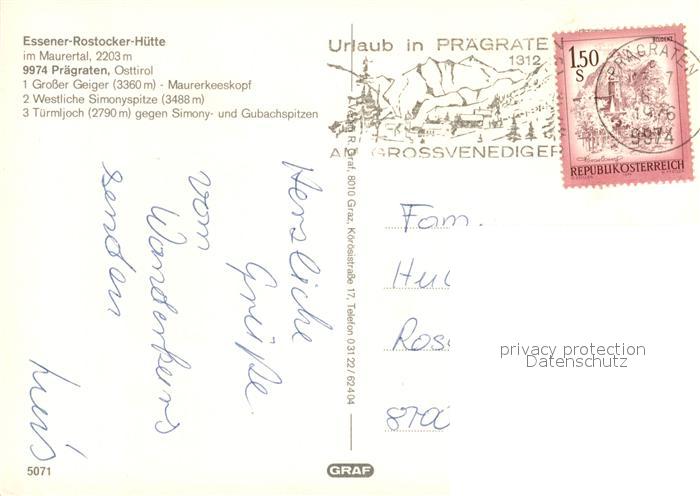 Essener-Rostocker-Hütte
im Maurertal, 2203 m
9974 Prägraten, Osttirol
1 Großer Geiger (3360 m) - Maurerkeeskopf
2 Westliche Simonyspitze (3488 m)
3 Türmljoch (2790 m) gegen Simony- und Gubachspitzen
Urlaub in PRÄGRATEN
1312
AM GROSSVENEDIGER
BLUDENZ
1.50
S
REPUBLIK ÖSTERREICH
PRÄGRATEN
1976
9974
Graf, 8010 Graz, Körösistraße 17, Telefon 0 31 22 / 6 24 04
Herzliche
Grüße
vom
senden
Fam.
privacy protection
Datenschutz
5071
GRAF